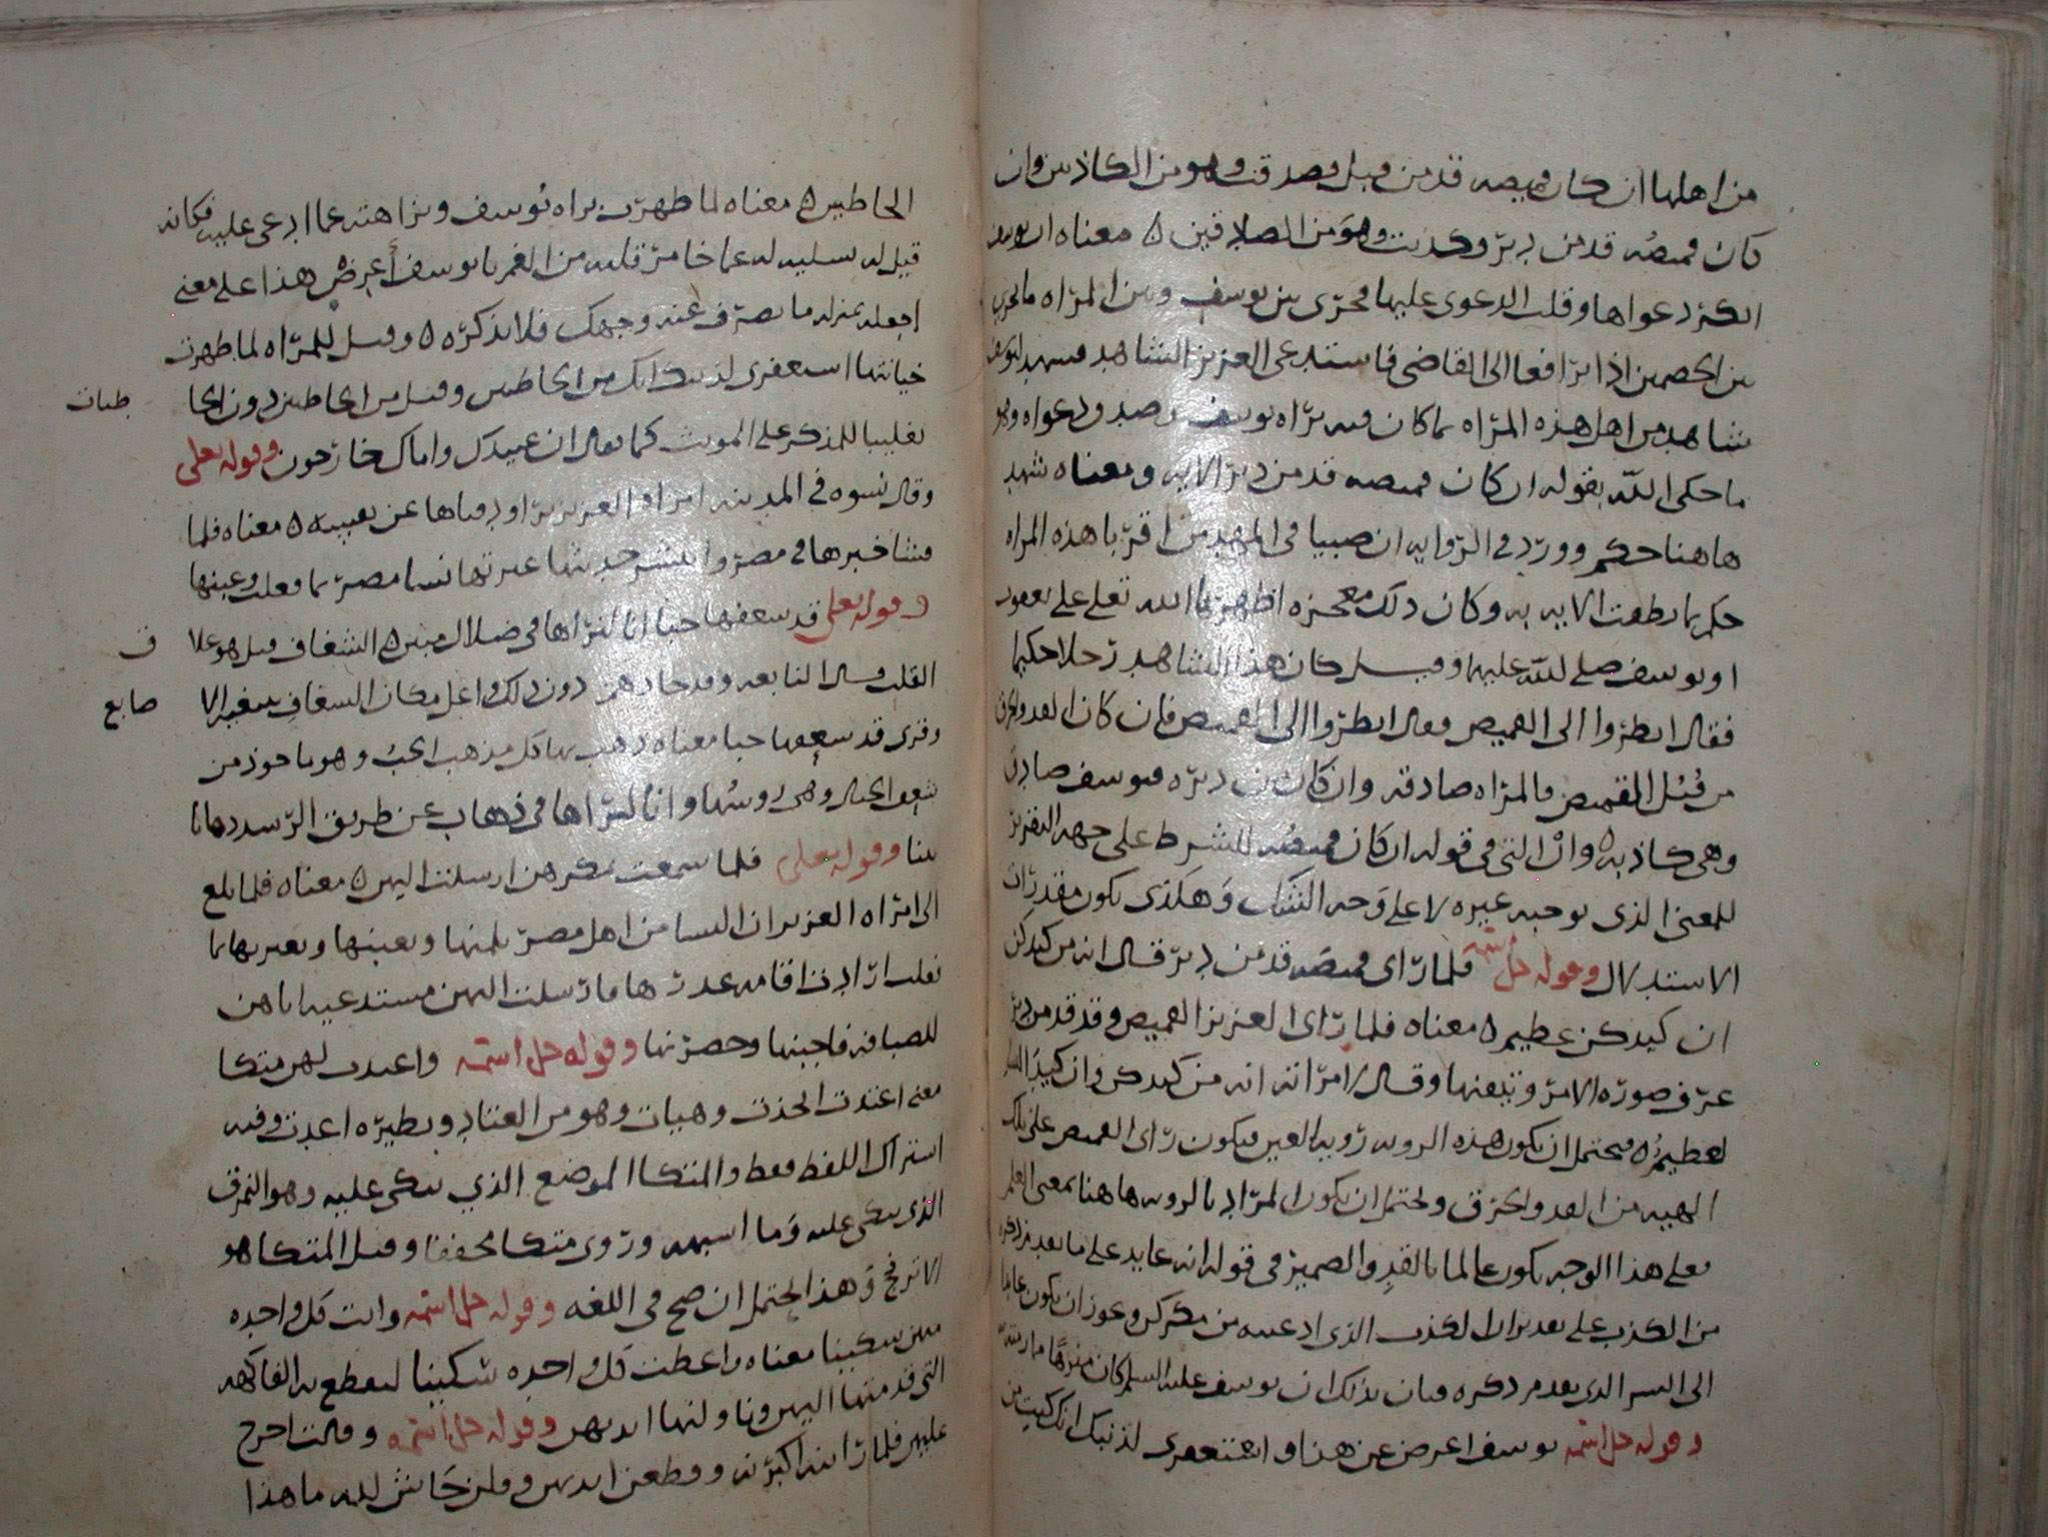 من اهلها ان كان قميصه قد من قبل فصدقت وهو من الكاذبين وان
كان قميصُه قد من دبرٍ وكذبت وهوَ من الصادقين ه معناه ان يوسف
انكر دعواها وقلب الدعوى عليها فجرى بين يوسف وبين المراه ما يجري
بين الخصمين اذا ترافعا الى القاضي فاستدعى العزيز الشاهد فشهد ليوسف
شاهد من اهل هذه المراه بما كان فيه براه يوسف وصدق دعواه وهو
ما حكى الله بقوله ان كان قميصه قد من دبر الايه ومعناه شهد
هاهنا حكم وورد في الروايه ان صبيا في المهد من اقربا هذه المراه
حكم بما نطقت الايه به وكان ذلك معجزه اظهرها الله تعلى على يعقوب
او يوسف صلى لله عليهما وقيل كان هذا الشاهد رجلا حكيما
فقال انظروا الى القميص فقال انظروا الى القميص فان كان القد والخرق
من قُبُل القميص فالمراه صادقه وان كان من دبره فيوسف صادق
وهي كاذبه ه وانْ التي في قوله ان كان قميصُه للشرط على جهه التقرير
للمعنى الذي يوجبه غيره لا على وَجه الشك وَهكذى يكون مقدرات
الاستدلال وقوله جل اسمه فلما راى قميصَه قد من دبر قال انه من كيدكن
ان كيدكن عظيم ه معناه فلما راى العزيز القميص وقد قد من دبر
عرف صوره الامر وتيقنها وقال لامراته انه من كيدكن وان كيدَ النسا
لعظيمٌ ه فيحتمل ان يكون هذه الرويه رويه العين فيكون راى القميص على تلك
الهييه من القد والخرق ويحتمل ان يكون المراد بالرويه هاهنا بمعنى العلم
فعلى هذا الوجه يكون عالما بالقد والضمير في قوله انه عايد على ما تقدم ذكره
من الكذب على تقدير ان الكذب الذي ادعيته من مكركن ويجوز ان يكون عايدا
الى السر الذي تقدم ذكره فبان بذلك ان يوسف عليه السلم كان منزهًا مما رمته
وقوله جل اسمه يوسف اعرض عن هذا واستغفري لذنبك انك كنت من
الخاطيين ه معناه لما ظهرت براه يوسف ونزاهته عما ادعى عليه فكانه
قيل له تسليه له عما خامر قلبه من الغم يا يوسف أَعرضْ هذا على معنى
اجعله بمنزله ما تصرف عنه وجهك فلا تذكره ه وقيل للمراه لما ظهرت
خيانتها استغفري لذنبك انك من الخاطيين وقيل من الخاطيين دون الخا طيات
تغليبا للمذكر على المونث كما يقال ان عبيدك واماك خارجون وقوله تعلى
وقال نسوه في المدينه امراه العزيز تراود فتاها عن نفسه ه معناه فلما
فشا خبرها في مصر وانتشر حديثها عيرتها نسا مصر بما فعلت وعبنها
وقوله تعلى قد شعفها حبا انا لنراها في ضلال مبين ه الشغاف قيل هو غلا ف
القلب قال النابغه وقد حال هم دون ذلك داخل مكان الشغاف تبتغيه الا صابع
وقري قد شعفها حبا معناه ذهب بها كل مذهب الحب وهو ماخوذ من
شعف الجبال وهي روسُها وانا لنراها في ذهاب عن طريق الرشد ذهابا
بينا وقوله تعلى فلما سمعت بمكرهن ارسلت اليهن ه معناه فلما بلغ
الى امراه العزيز ان النسا من اهل مصر يلمنها ويعبنها ويعيرنها بما
فعلت ارادت اقامه عذرها فارسلت اليهن مستدعيه اياهن
للضيافه فاجبنها وحضرنها وقوله جل اسمه واعتدت لهن متكا
معنى اعتدت اتخذت وهيات وهو من العتاد ونظيره اعدت وفيه
اشتراك اللفظ فقط والمتكا الموضع الذي يتكى عليه وهو النمرق
الذي يتكى عليه وَما اشبهه وروى متكا مخففا وقيل المتكا هو
الاترج وَهذا يحتمل ان صح في اللغه وقوله جل اسمه واتت كل واحده
منهن سكينا معناه واعطت كل واحده سكينا ليقطع به الفاكهه
التي قدمتها اليهن وناولنها ايديهن وقوله جل اسمه وقالت اخرج
عليهن فلما راينه اكبرنه وقطعن ايديهن وقلن حَاش لله ما هذا